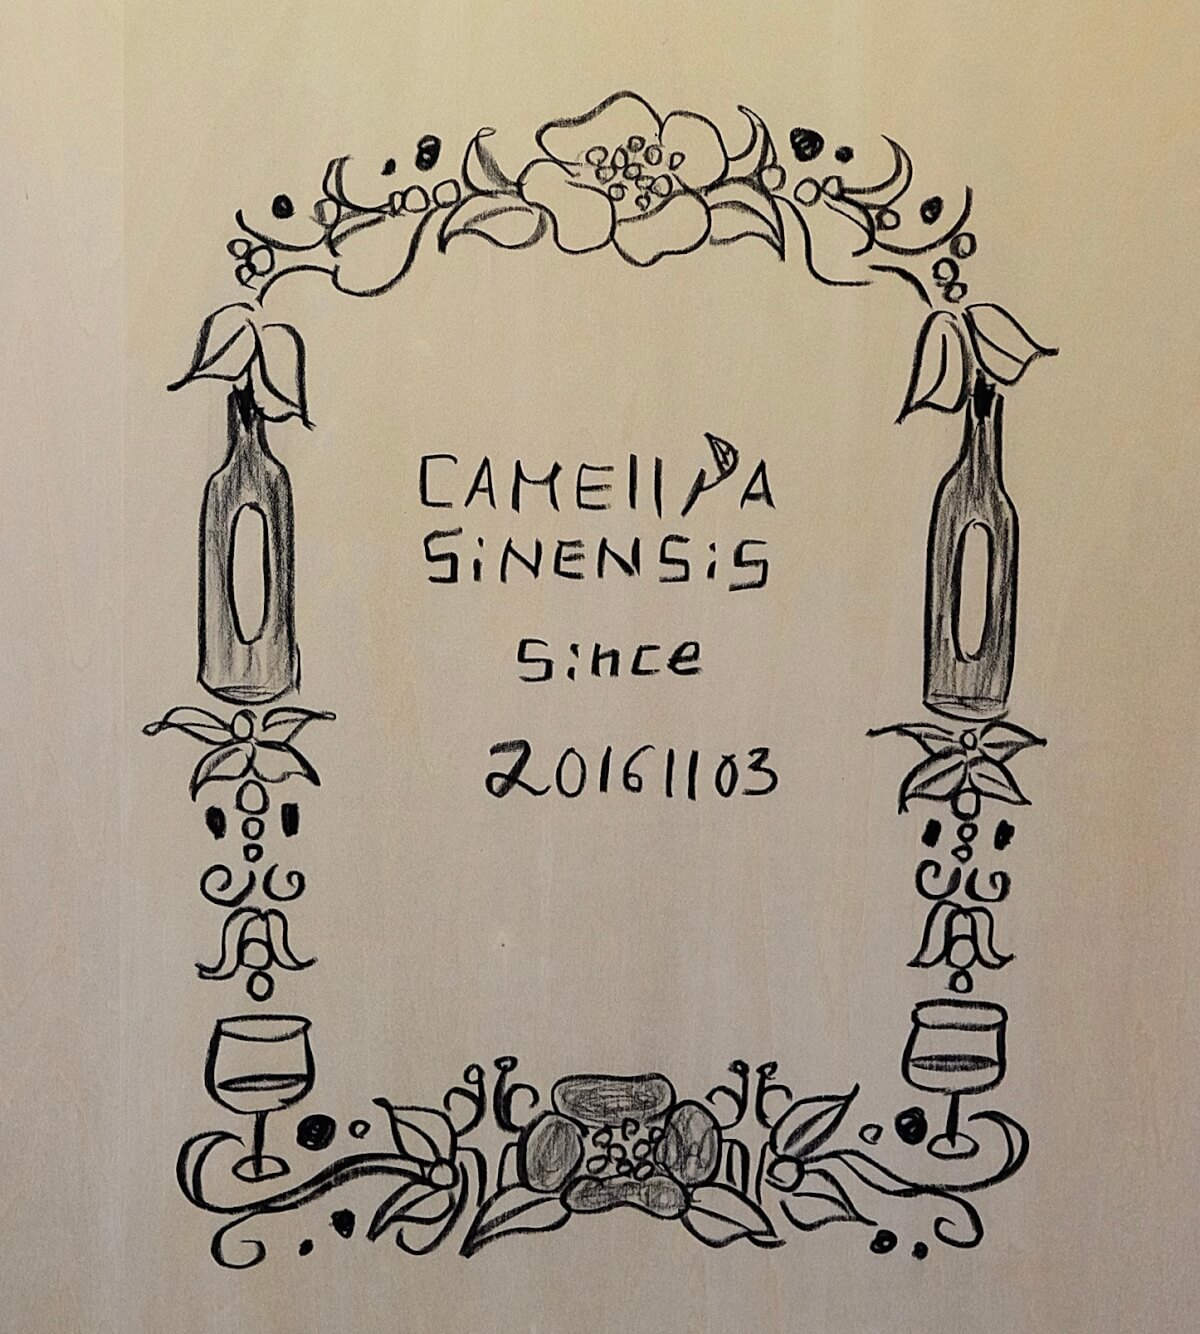 CAMEllIA
SiNENSiS
since
20161103